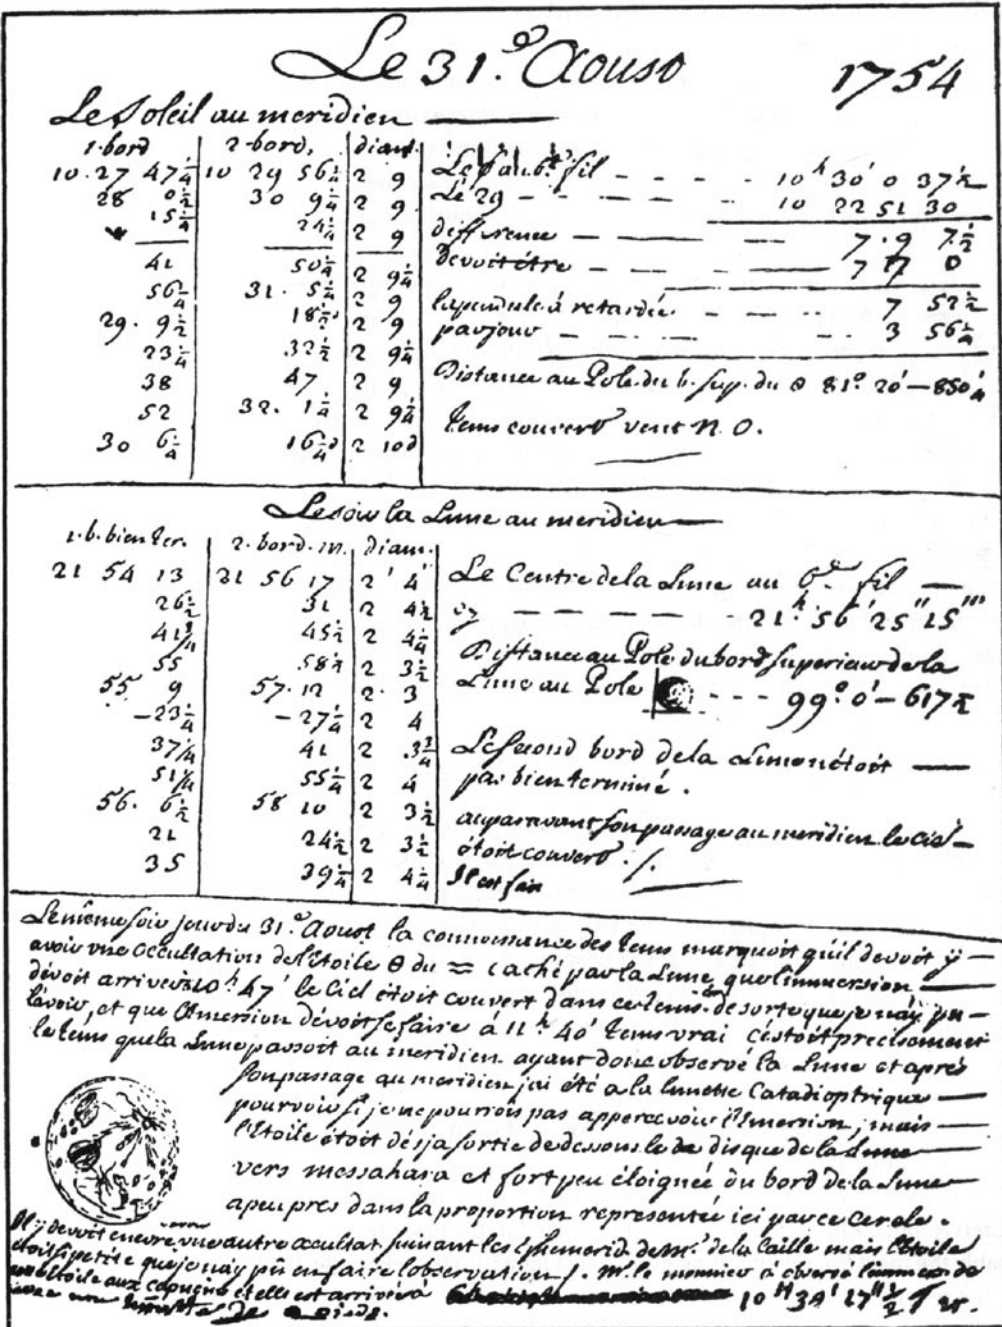 Le 31.º Aoust 1754
Le Soleil au meridien
1. bord 2. bord. diam.
10. 27 47¼ 10 29 56¼ 2 9
28 0½ 30 9¼ 2 9
15¼ 24¼ 2 9
41 50¼ 2 9¼
56¼ 31. 5¼ 2 9
29. 9½ 18½ 2 9
23¼ 32½ 2 9¼
38 47 2 9
52 32. 1¼ 2 9¼
30 6¼ 16¼ 2 10
Le au 6. fil 10ʰ 30' 0 37½
Le 29 10 22 51 30
difference 7. 9 7½
devoit être 7 17 0
la pendule à retardée 7 52½
par jour 3 56¼
Distance au Pole du b. sup. du 81º 20' – 850¼
tems couvert vent N. O.
Le soir la Lune au meridien
1. b. bien ter. 2. bord. in. diam.
21 54 13 21 56 17 2' 4"
26½ 31 2 4½
41¾ 45½ 2 4¼
55 58½ 2 3½
55 9 57. 12 2. 3
– 23¼ – 27¼ 2 4
37¼ 41 2 3¾
51¼ 55¼ 2 4
56. 6½ 58 10 2 3½
21 24½ 2 3½
35 39¼ 2 4¼
Le Centre de la Lune au 6.e fil
21ʰ. 56' 25" 15'''
Distance au Pole du bord superieur de la
Lune au Pole 99º 0' – 617½
Le second bord de la Lune n'étoit
pas bien terminé.
auparavant son passage au meridien le ciel
étoit couvert.
Il est fair
Le même soir jour du 31.º Aoust la connoissance des tems marquoit qu'il devoit ÿ
avoir une occultation de l'étoile θ du ♒ caché par la Lune, que l'immersion
dévoit arriver à 10ʰ. 47' le Ciel étoit couvert dans ce tems de sorte que je n'aÿ pu
la voir, et que l'Emersion dévoit se faire à 11ʰ 40' tems vrai c'estoit precisement
le tems que la Lune passoit au meridien. ayant donc observé la Lune et aprés
son passage au meridien j'ai été a la lunette Catadioptrique
pour voir si je ne pourrois pas appercevoir l'Emersion; mais
l'Etoile étoit désja sortie de dessous le disque de la Lune
vers messahara et fort peu éloignée du bord de la Lune
a peu pres dans la proportion representée ici par ce Cercle.
Il ÿ devoit encore une autre occultat. suivant les Ephemerid. de Mr. de la Caille mais l'Etoile
étoit si petite que je n'ay pû en faire l'observation. Mr. le monnier à observé l'immersion de
l'étoile aux capucins et elle est arrivée à 10ᴴ 39' 27" ½ T. vr.
avec une lunette de pieds.